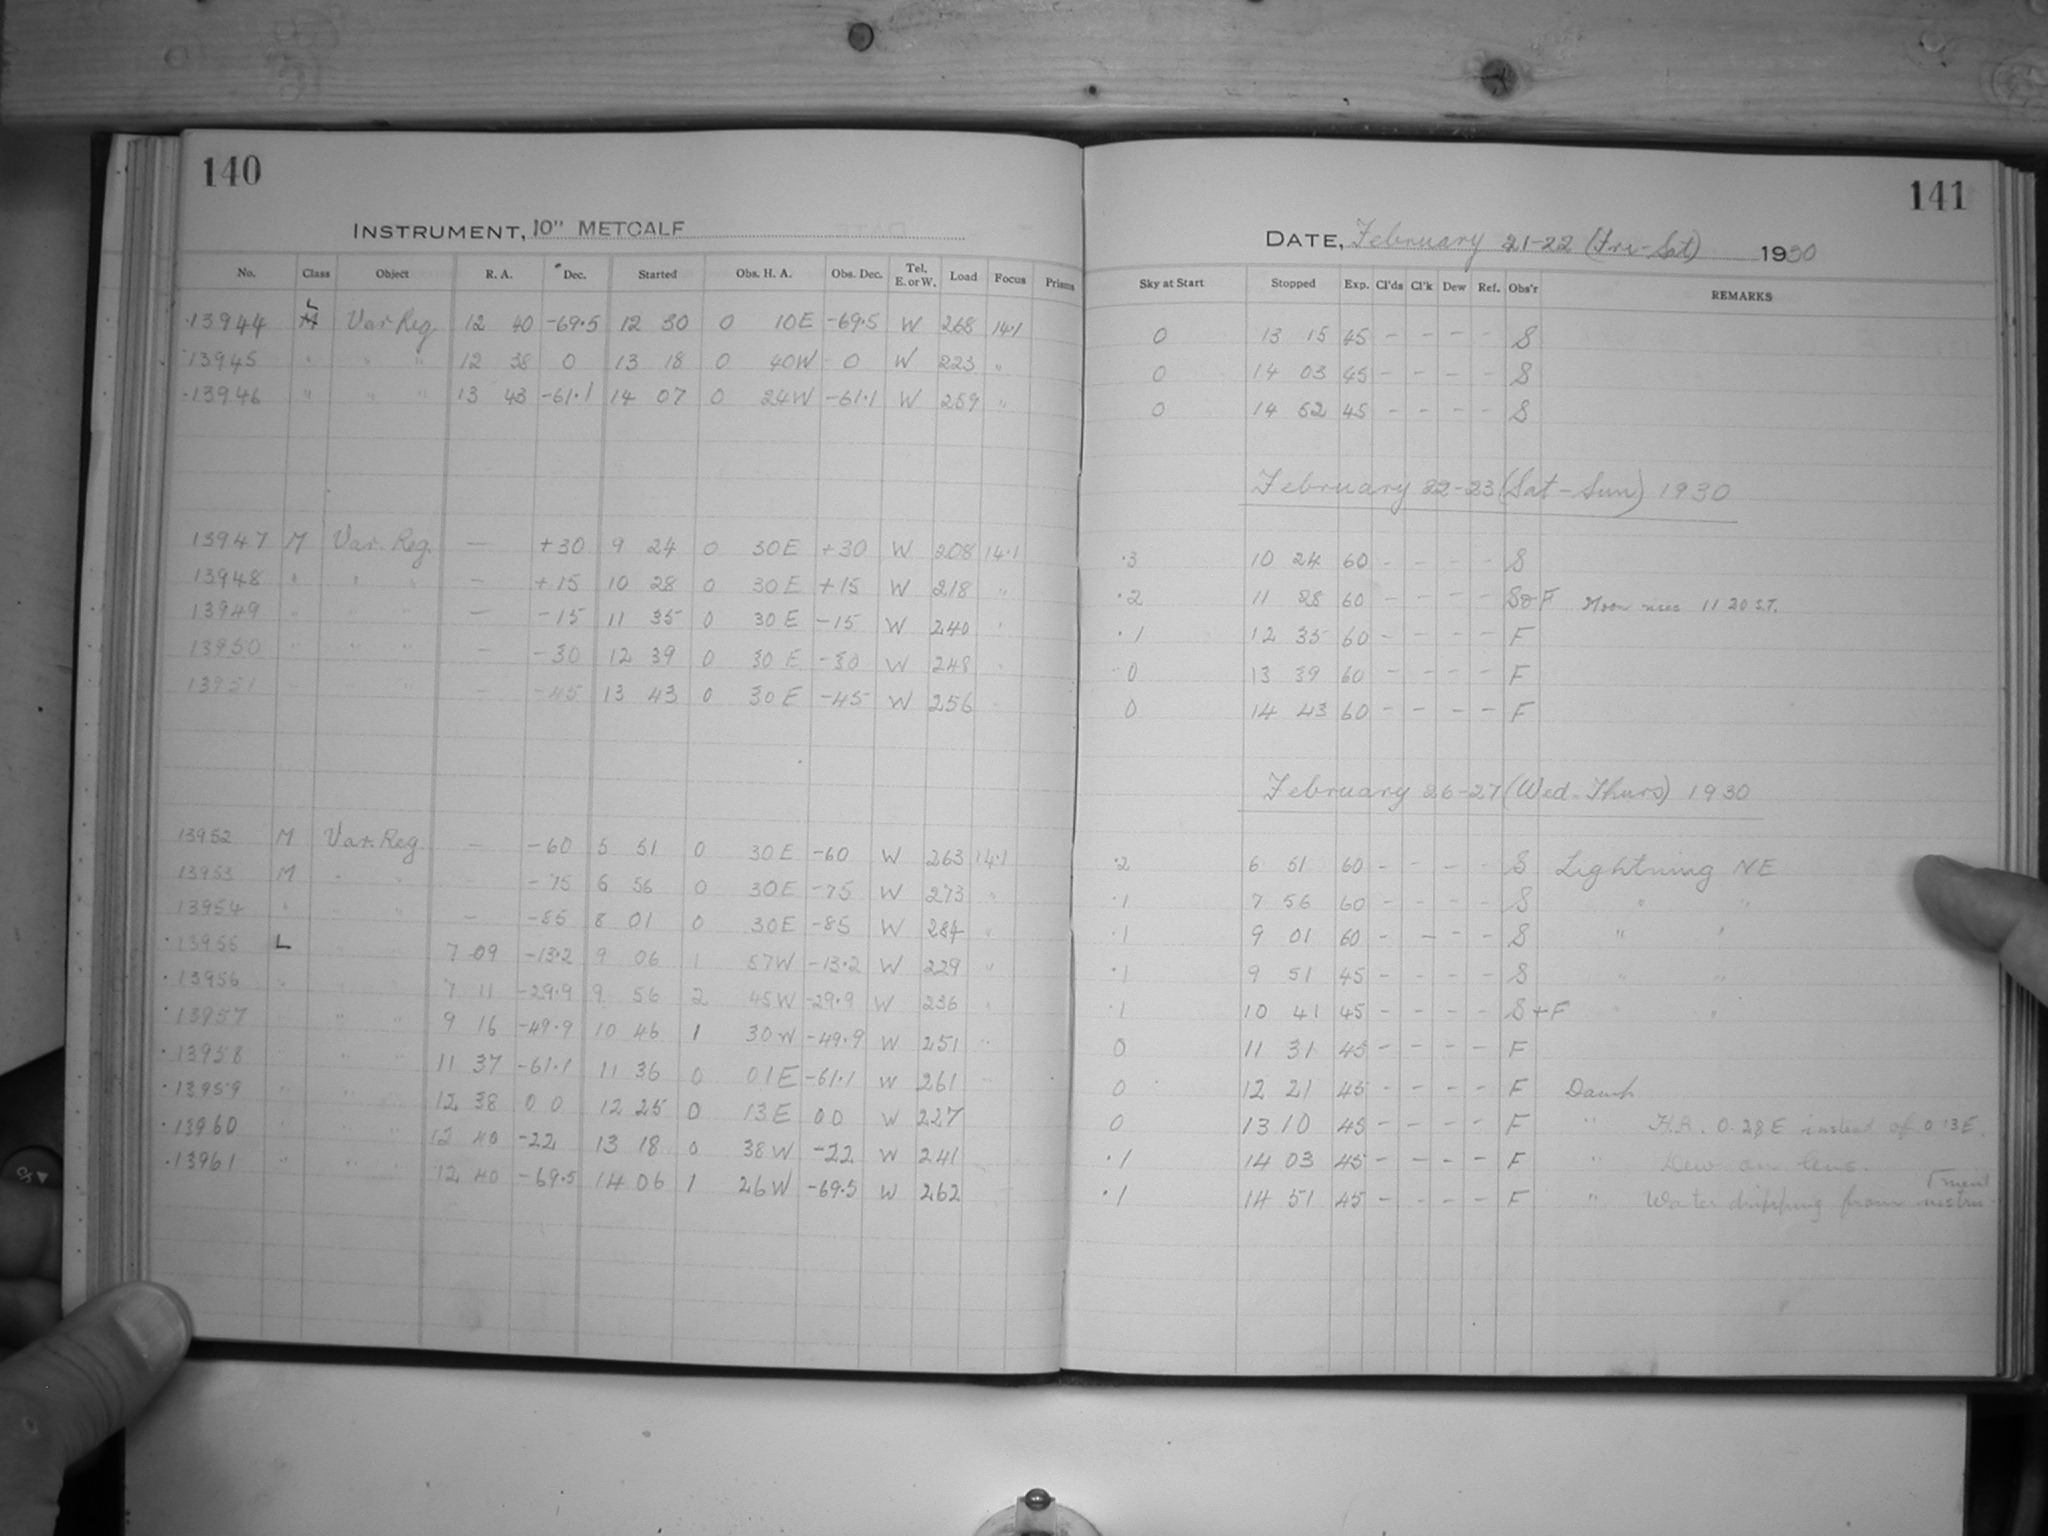 140
INSTRUMENT, 10" METCALF
No. Class Object R. A. Dec. Started Obs. H. A. Obs. Dec. Tel. E. or W. Load Focus Prisms
L
13944 M Var Reg 12 40 -69.5 12 30 0 10E -69.5 W 268 14.1
13945 " " " 12 38 0 13 18 0 40W 0 W 223 "
13946 " " " 13 43 -61.1 14 07 0 24W -61.1 W 259 "
13947 M Var. Reg. — +30 9 24 0 30E +30 W 208 14.1
13948 " " " — +15 10 28 0 30E +15 W 218 "
13949 " " " — -15 11 35 0 30E -15 W 240 "
13950 " " " — -30 12 39 0 30E -30 W 248 "
13951 — -45 13 43 0 30E -45 W 256
13952 M Var. Reg. — -60 5 51 0 30E -60 W 263 14.1
13953 M " " -75 6 56 0 30E -75 W 273 "
13954 " " " — -85 8 01 0 30E -85 W 284 "
13955 L " " 7 09 -13.2 9 06 1 57W -13.2 W 229 "
13956 " " " 7 11 -29.9 9 56 2 45W -29.9 W 236 "
13957 " " " 9 16 -49.9 10 46 1 30W -49.9 W 251 "
13958 " " " 11 37 -61.1 11 36 0 01E -61.1 W 261
13959 " " " 12 38 0 0 12 25 0 13E 0 0 W 227
13960 " " " 12 40 -22 13 18 0 38W -22 W 241
13961 " " " 12 40 -69.5 14 06 1 26W -69.5 W 262
141
DATE, February 21-22 (Fri-Sat) 1930
Sky at Start Stopped Exp. Cl'ds Cl'k Dew Ref. Obs'r REMARKS
0 13 15 45 - - - - S
0 14 03 45 - - - - S
0 14 52 45 - - - - S
February 22-23 (Sat-Sun) 1930
.3 10 24 60 - - - - S
.2 11 28 60 - - - - S&F Moon rises 11 20 S.T.
.1 12 35 60 - - - - F
0 13 39 60 - - - - F
0 14 43 60 - - - - F
February 26-27 (Wed-Thurs) 1930
.2 6 51 60 - - - - S Lightning NE
.1 7 56 60 - - - - S " "
.1 9 01 60 - - - - S " "
.1 9 51 45 - - - - S " "
.1 10 41 45 - - - - S+F " "
0 11 31 45 - - - - F
0 12 21 45 - - - - F Damp
0 13 10 45 - - - - F " H.A. 0.28E instead of 0 13E.
.1 14 03 45 - - - - F " Dew on lens.
.1 14 51 45 - - - - F " Water dripping from instru-
ment